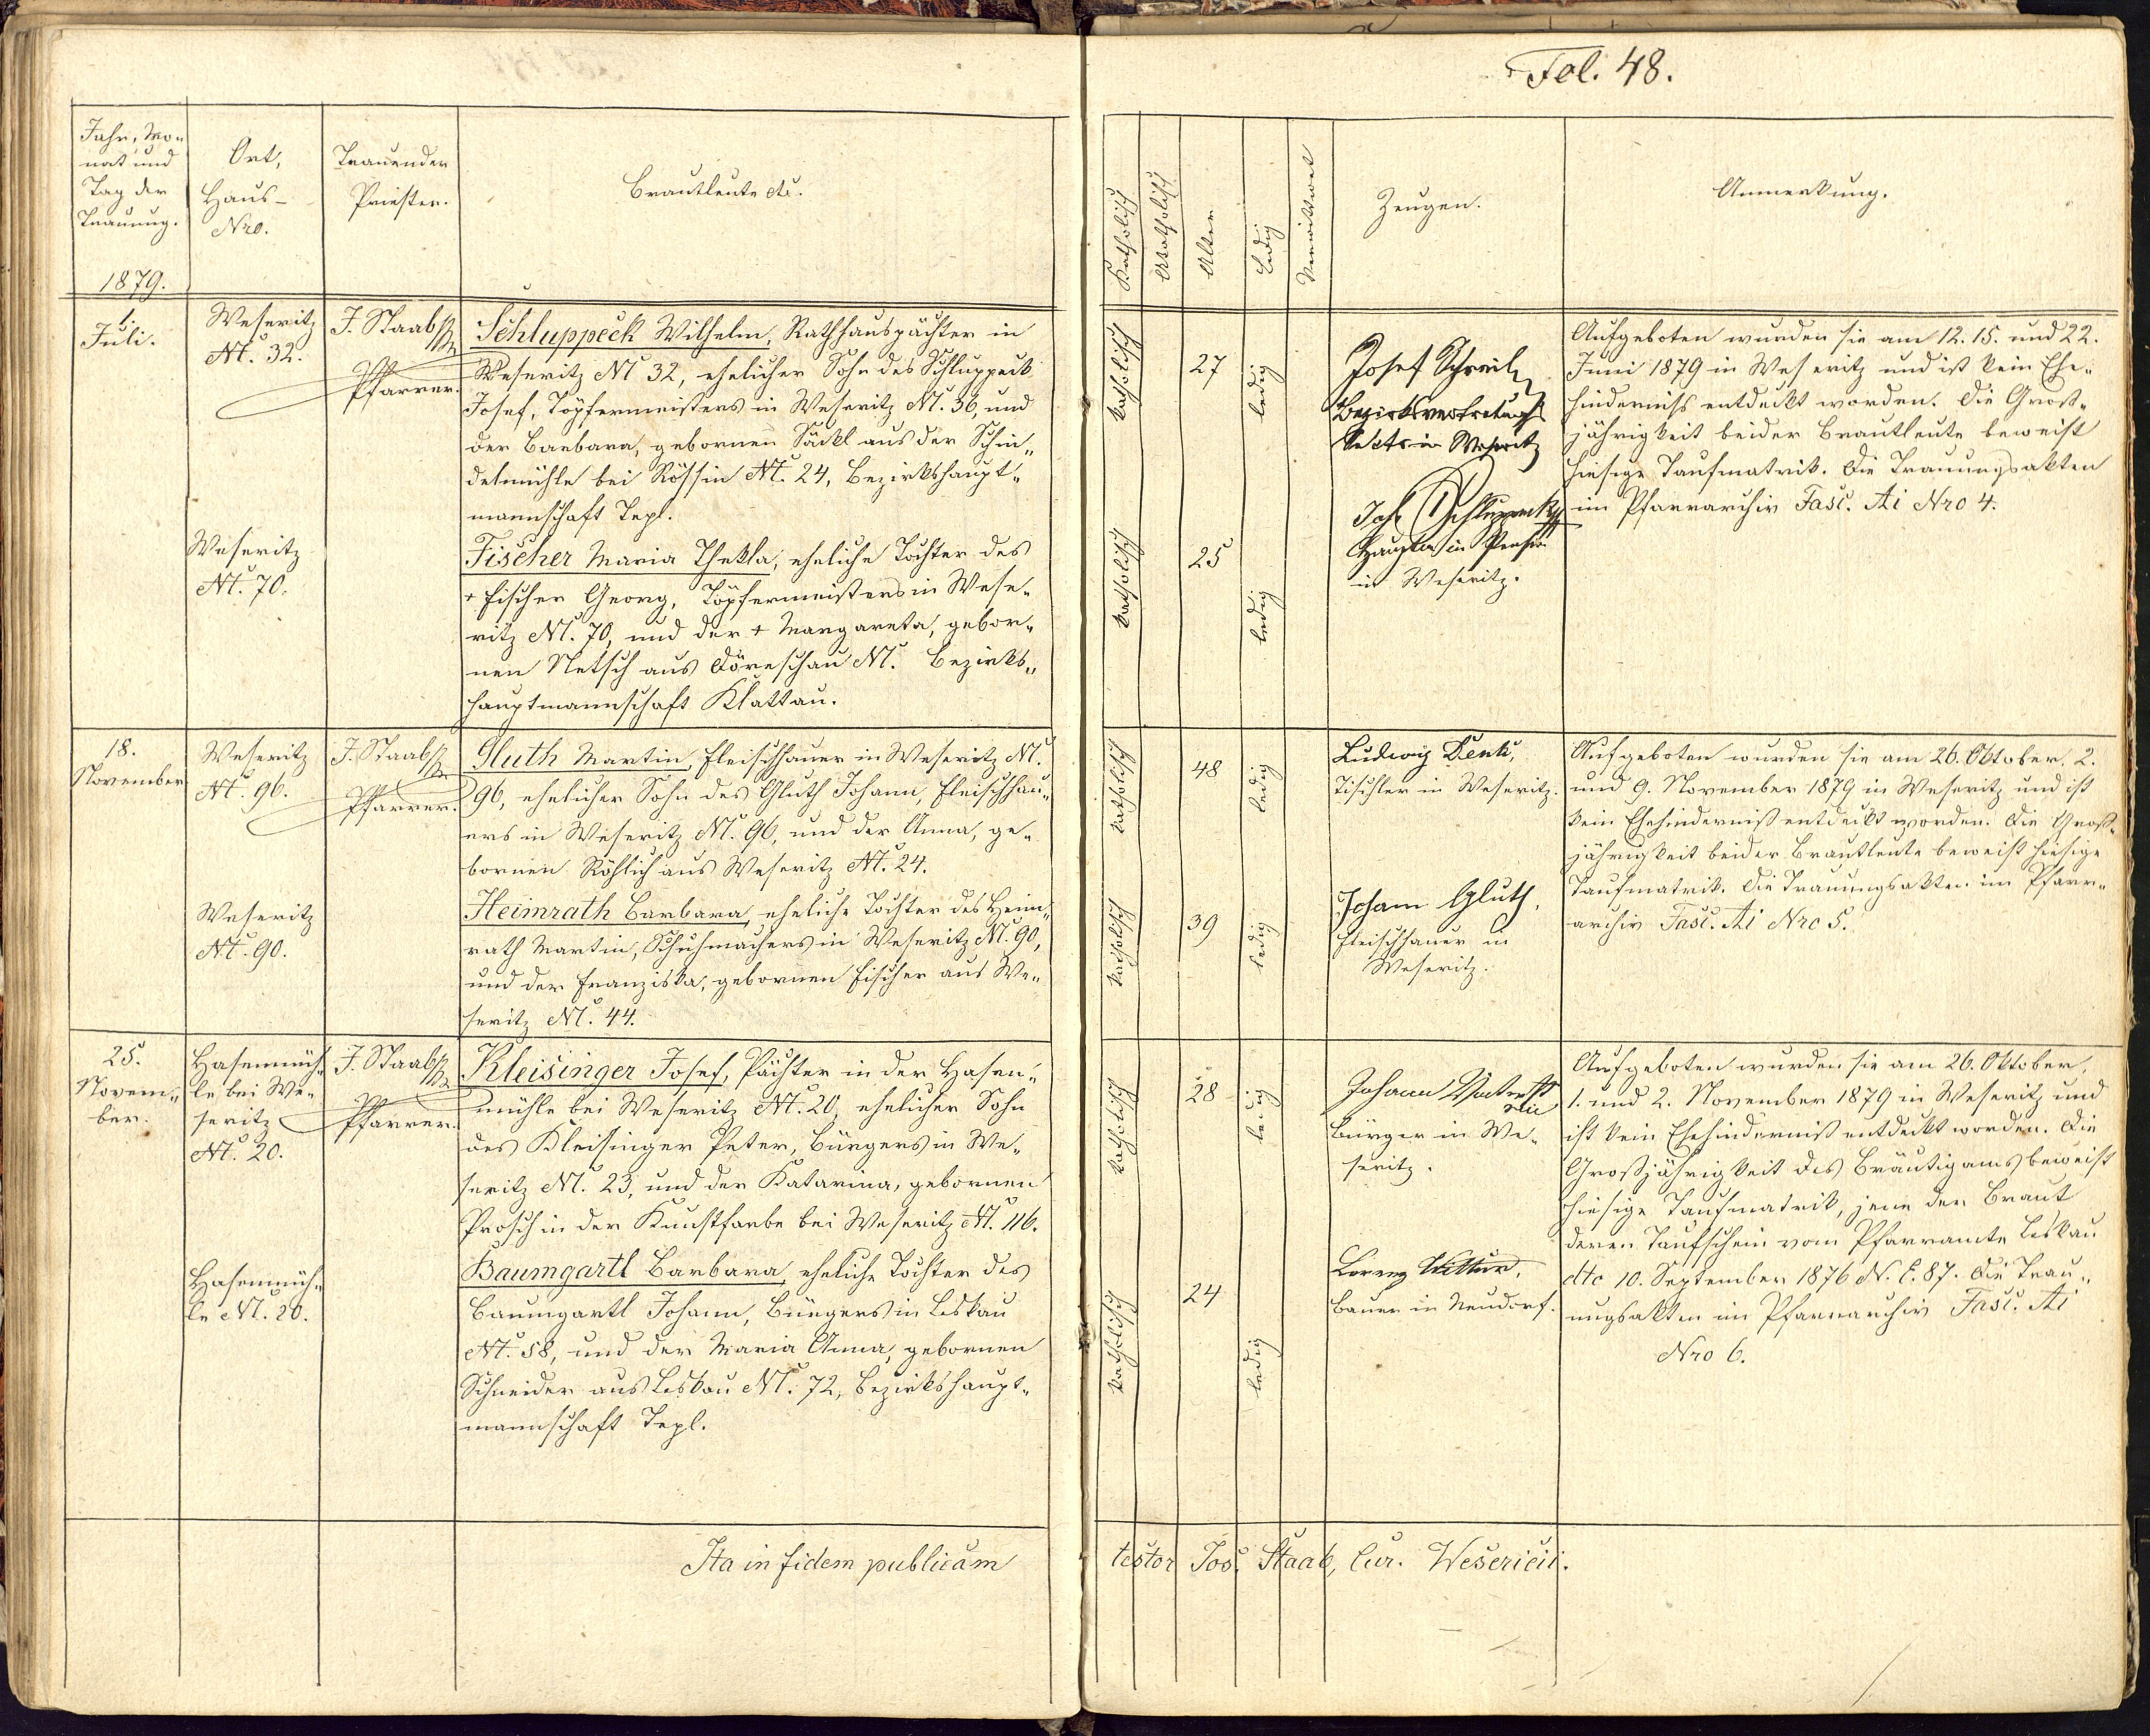 Fol. 48.
Jahr, Mo-
nat und
Tag der
Trauung.
1879.
Ort,
Haus-
Nro.
Trauender
Priester.
Brautleute etc.
Katholisch
Akatholisch
Alter
Ledig
Verwittwet
Zeugen.
Anmerkung.
1.
Juli.
Weseritz
N. 32.
J. Staab
Pfarrer.
Schluppeck Wilhelm, Rathhauspächter in
Weseritz N 32, ehelicher Sohn des Schluppeck
Josef, Töpfermeisters in Weseritz N. 36, und
der Barbara, gebornen Säckl aus der Schin-
delmühle bei Rössin N. 24, Bezirkshaupt-
mannschaft Tepl.
Weseritz
N. 70.
Fischer Maria Thekla, eheliche Tochter des
+ Fischer Georg, Töpfermeisters in Wese-
ritz N. 70, und der + Margareta, gebor-
nen Netsch aus N. Bezirks-
hauptmannschaft Klattau.
katholisch
27
ledig
katholisch
25
ledig
Josef
Bezirksvertretungs
in Weseritz
Joh Schluppeck
in Pension
in Weseritz.
Aufgeboten wurden sie am 12. 15. und 22.
Juni 1879 in Weseritz und ist kein Ehe-
hinderniss entdeckt worden. Die Gross-
jährigkeit beider Brautleute beweist
hiesige Taufmatrik. Die Trauungsakten
im Pfarrarchiv Fasc. Ai Nro 4.
18.
November
Weseritz
N. 96.
J. Staab
Pfarrer.
Gluth Martin, Fleischhauer in Weseritz N.
96, ehelicher Sohn des Gluth Johann, Fleischhau-
ers in Weseritz N. 96, und der Anna, ge-
bornen Röhlich aus Weseritz N. 24.
Weseritz
N. 90.
Heimrath Barbara, eheliche Tochter des Heim-
rath Martin, Schuhmachers in Weseritz N. 90,
und der Franziska, gebornen Fischer aus We-
seritz N. 44.
katholisch
48
ledig
katholisch
39
ledig
Ludwig Denk,
Tischler in Weseritz.
Johann Gluth,
Fleischhauer in
Weseritz.
Aufgeboten wurden sie am 26. Oktober, 2.
und 9. November 1879 in Weseritz und ist
kein Ehehinderniß entdeckt worden. Die Groß-
jährigkeit beider Brautleute beweist hiesige
Taufmatrik. Die Trauungsakten im Pfarr-
archiv Fasc. Ai Nro 5.
25.
Novem-
ber.
Hasenmüh-
le bei We-
seritz
N. 20.
J. Staab
Pfarrer.
Kleisinger Josef, Pächter in der Hasen-
mühle bei Weseritz N. 20, ehelicher Sohn
des Kleisinger Peter, Bürgers in We-
seritz N. 23, und der Katarina, gebornen
Prosch in der Kunstfarbe bei Weseritz N. 116.
Hasenmüh-
le N. 20.
Baumgartl Barbara, eheliche Tochter des
Baumgartl Johann, Bürgers in Leskau
N. 58, und der Maria Anna, gebornen
Schneider aus Leskau N. 72, Bezirkshaupt-
mannschaft Tepl.
katholisch
28
ledig
katholisch
24
ledig
Johann
Bürger in We-
seritz.
Lorenz
Bauer in Neudorf.
Aufgeboten wurden sie am 26. Oktober,
1. und 2. November 1879 in Weseritz und
ist kein Ehehinderniß entdeckt worden. Die
Großjährigkeit des Bräutigams beweist
hiesige Taufmatrik, jene der Braut
deren Taufschein vom Pfarramte Leskau
dto 10. September 1876 N. E. 87. Die Trau-
ungsakten im Pfarrarchiv Fasc. Ai
Nro 6.
Ita in fidem publicam testor Jos. Staab, Cur. Wesericii.